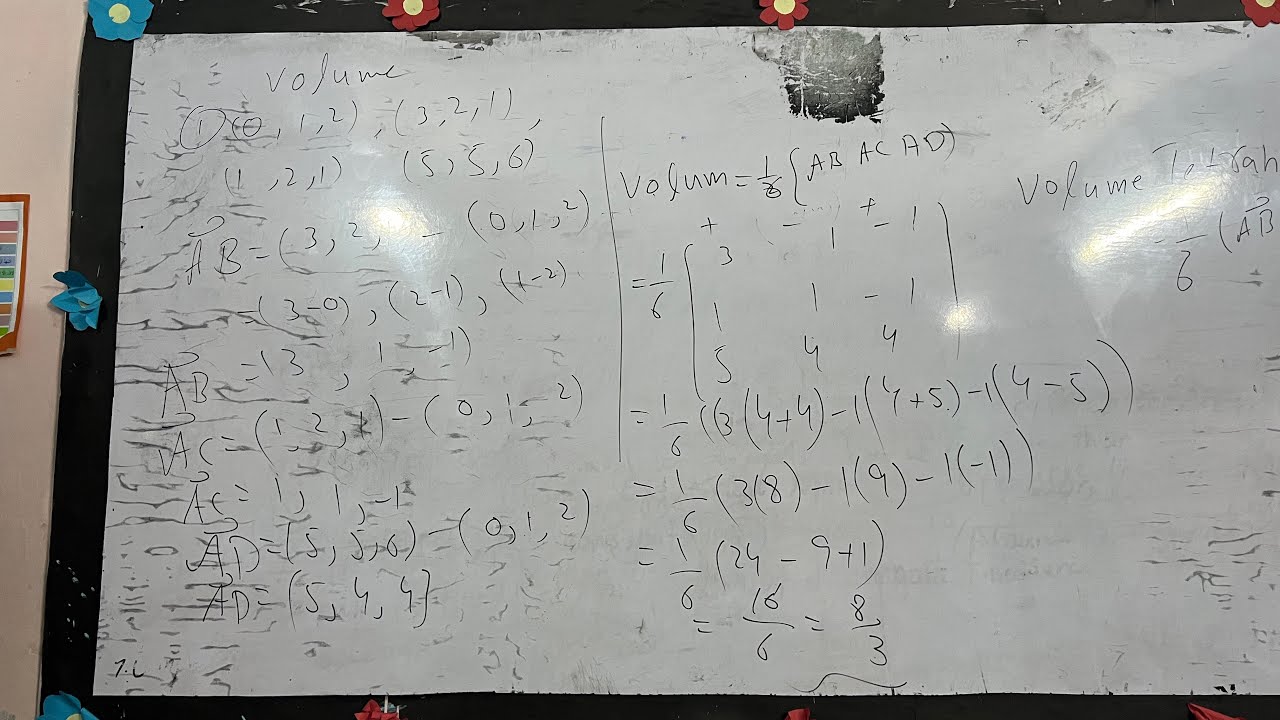 Volume
① (0, 1, 2), (3, 2, 1),
(1, 2, 1) (5, 5, 6)
AB⃗ = (3, 2, - (0, 1, 2)
= (3-0), (2-1), (1-2)
AB⃗ = (3, 1, -1)
AC⃗ = (1, 2, 1) - (0, 1, 2)
AC⃗ = 1, 1, -1
AD⃗ = (5, 5, 6) - (0, 1, 2)
AD⃗ = (5, 4, 4)
Volum = 1/6 {AB AC AD)
+ - +
= 1/6 | 3 1 -1
1 1 -1
5 4 4 |
= 1/6 ((3(4+4) - 1(4+5) - 1(4-5))
= 1/6 (3(8) - 1(9) - 1(-1))
= 1/6 (24 - 9+1)
= 16/6 = 8/3
Volume
1/6 (AB⃗